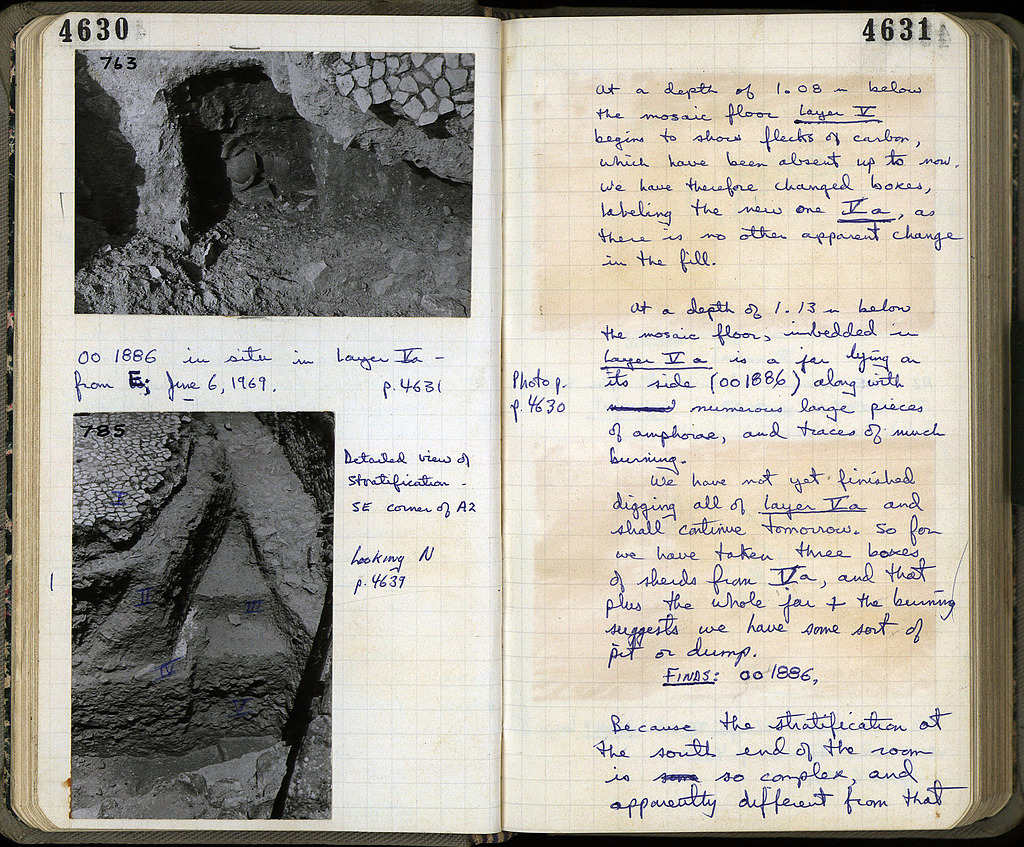 4630
763
OO 1886 in situ in Layer Va -
from E; June 6, 1969. p.4631
785
I
II
III
IV
V
Detailed view of
stratification -
SE corner of A2
Looking N
p.4639
4631
At a depth of 1.08 m below
the mosaic floor Layer V
begins to show flecks of carbon,
which have been absent up to now.
We have therefore changed boxes,
labeling the new one Va, as
there is no other apparent change
in the fill.
At a depth of 1.13 m below
the mosaic floor, imbedded in
Layer V a is a jar lying on
its side (OO1886) along with
numerous large pieces
of amphorae, and traces of much
burning.
Photo p.
p. 4630
We have not yet finished
digging all of Layer Va and
shall continue tomorrow. So far
we have taken three boxes
of sherds from Va, and that
plus the whole jar + the burning
suggests we have some sort of
pit or dump.
FINDS: OO1886,
Because the stratification at
the south end of the room
is some so complex, and
apparently different from that